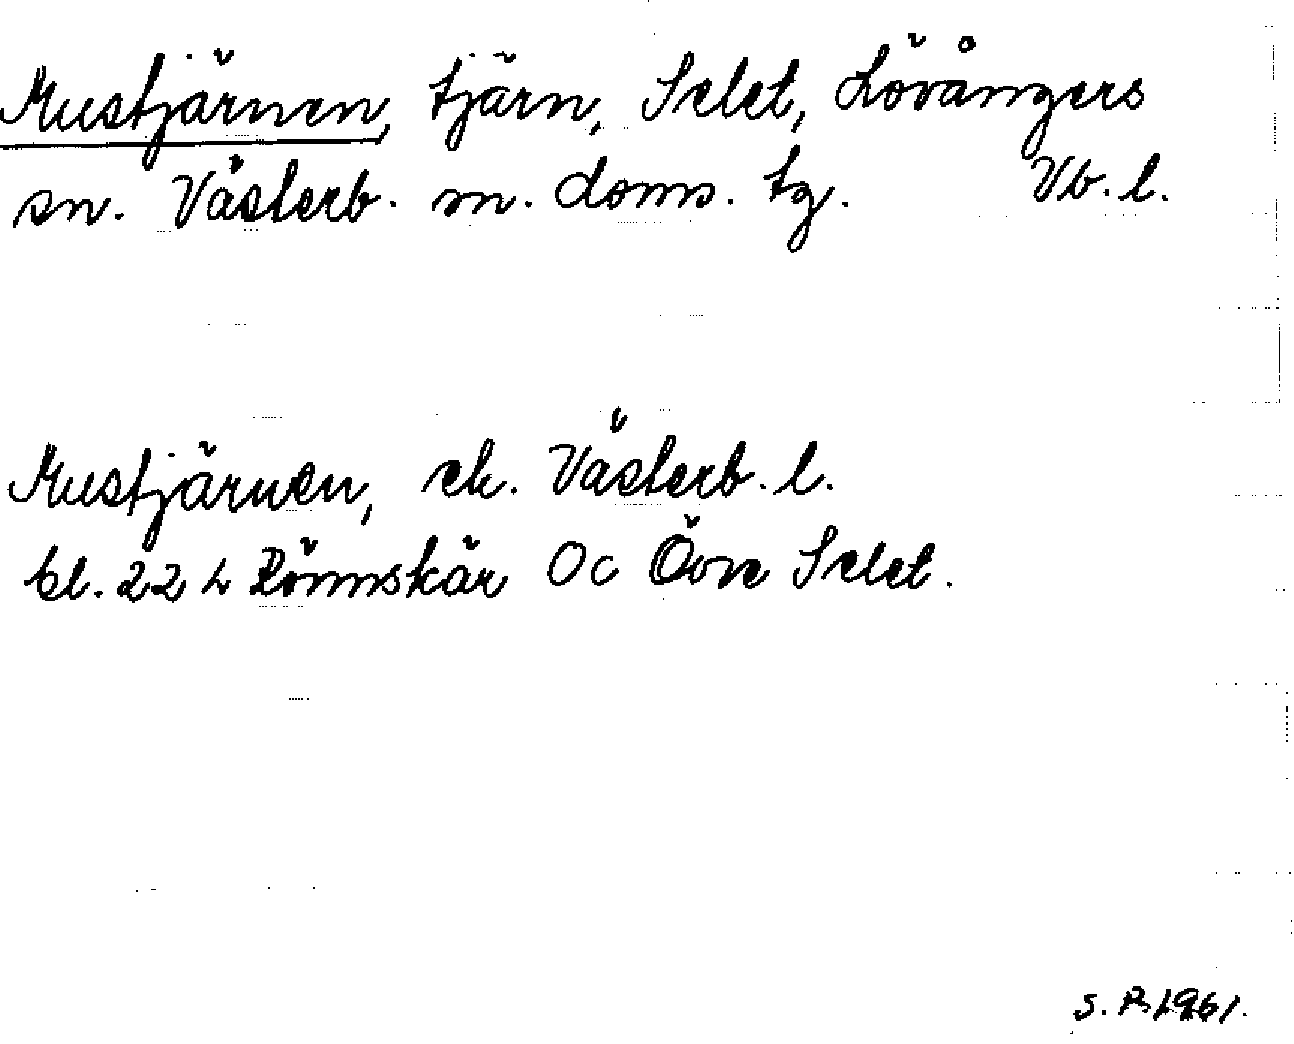 Mustjärnen, tjärn, Selet, Lövångers
sn. Västerb. m. doms. tg. Vb. l.
Mustjärnen, ek. Västerb. l.
bl. 22 L Rönnskär Oc Övre Selet.
S. P. 1961.